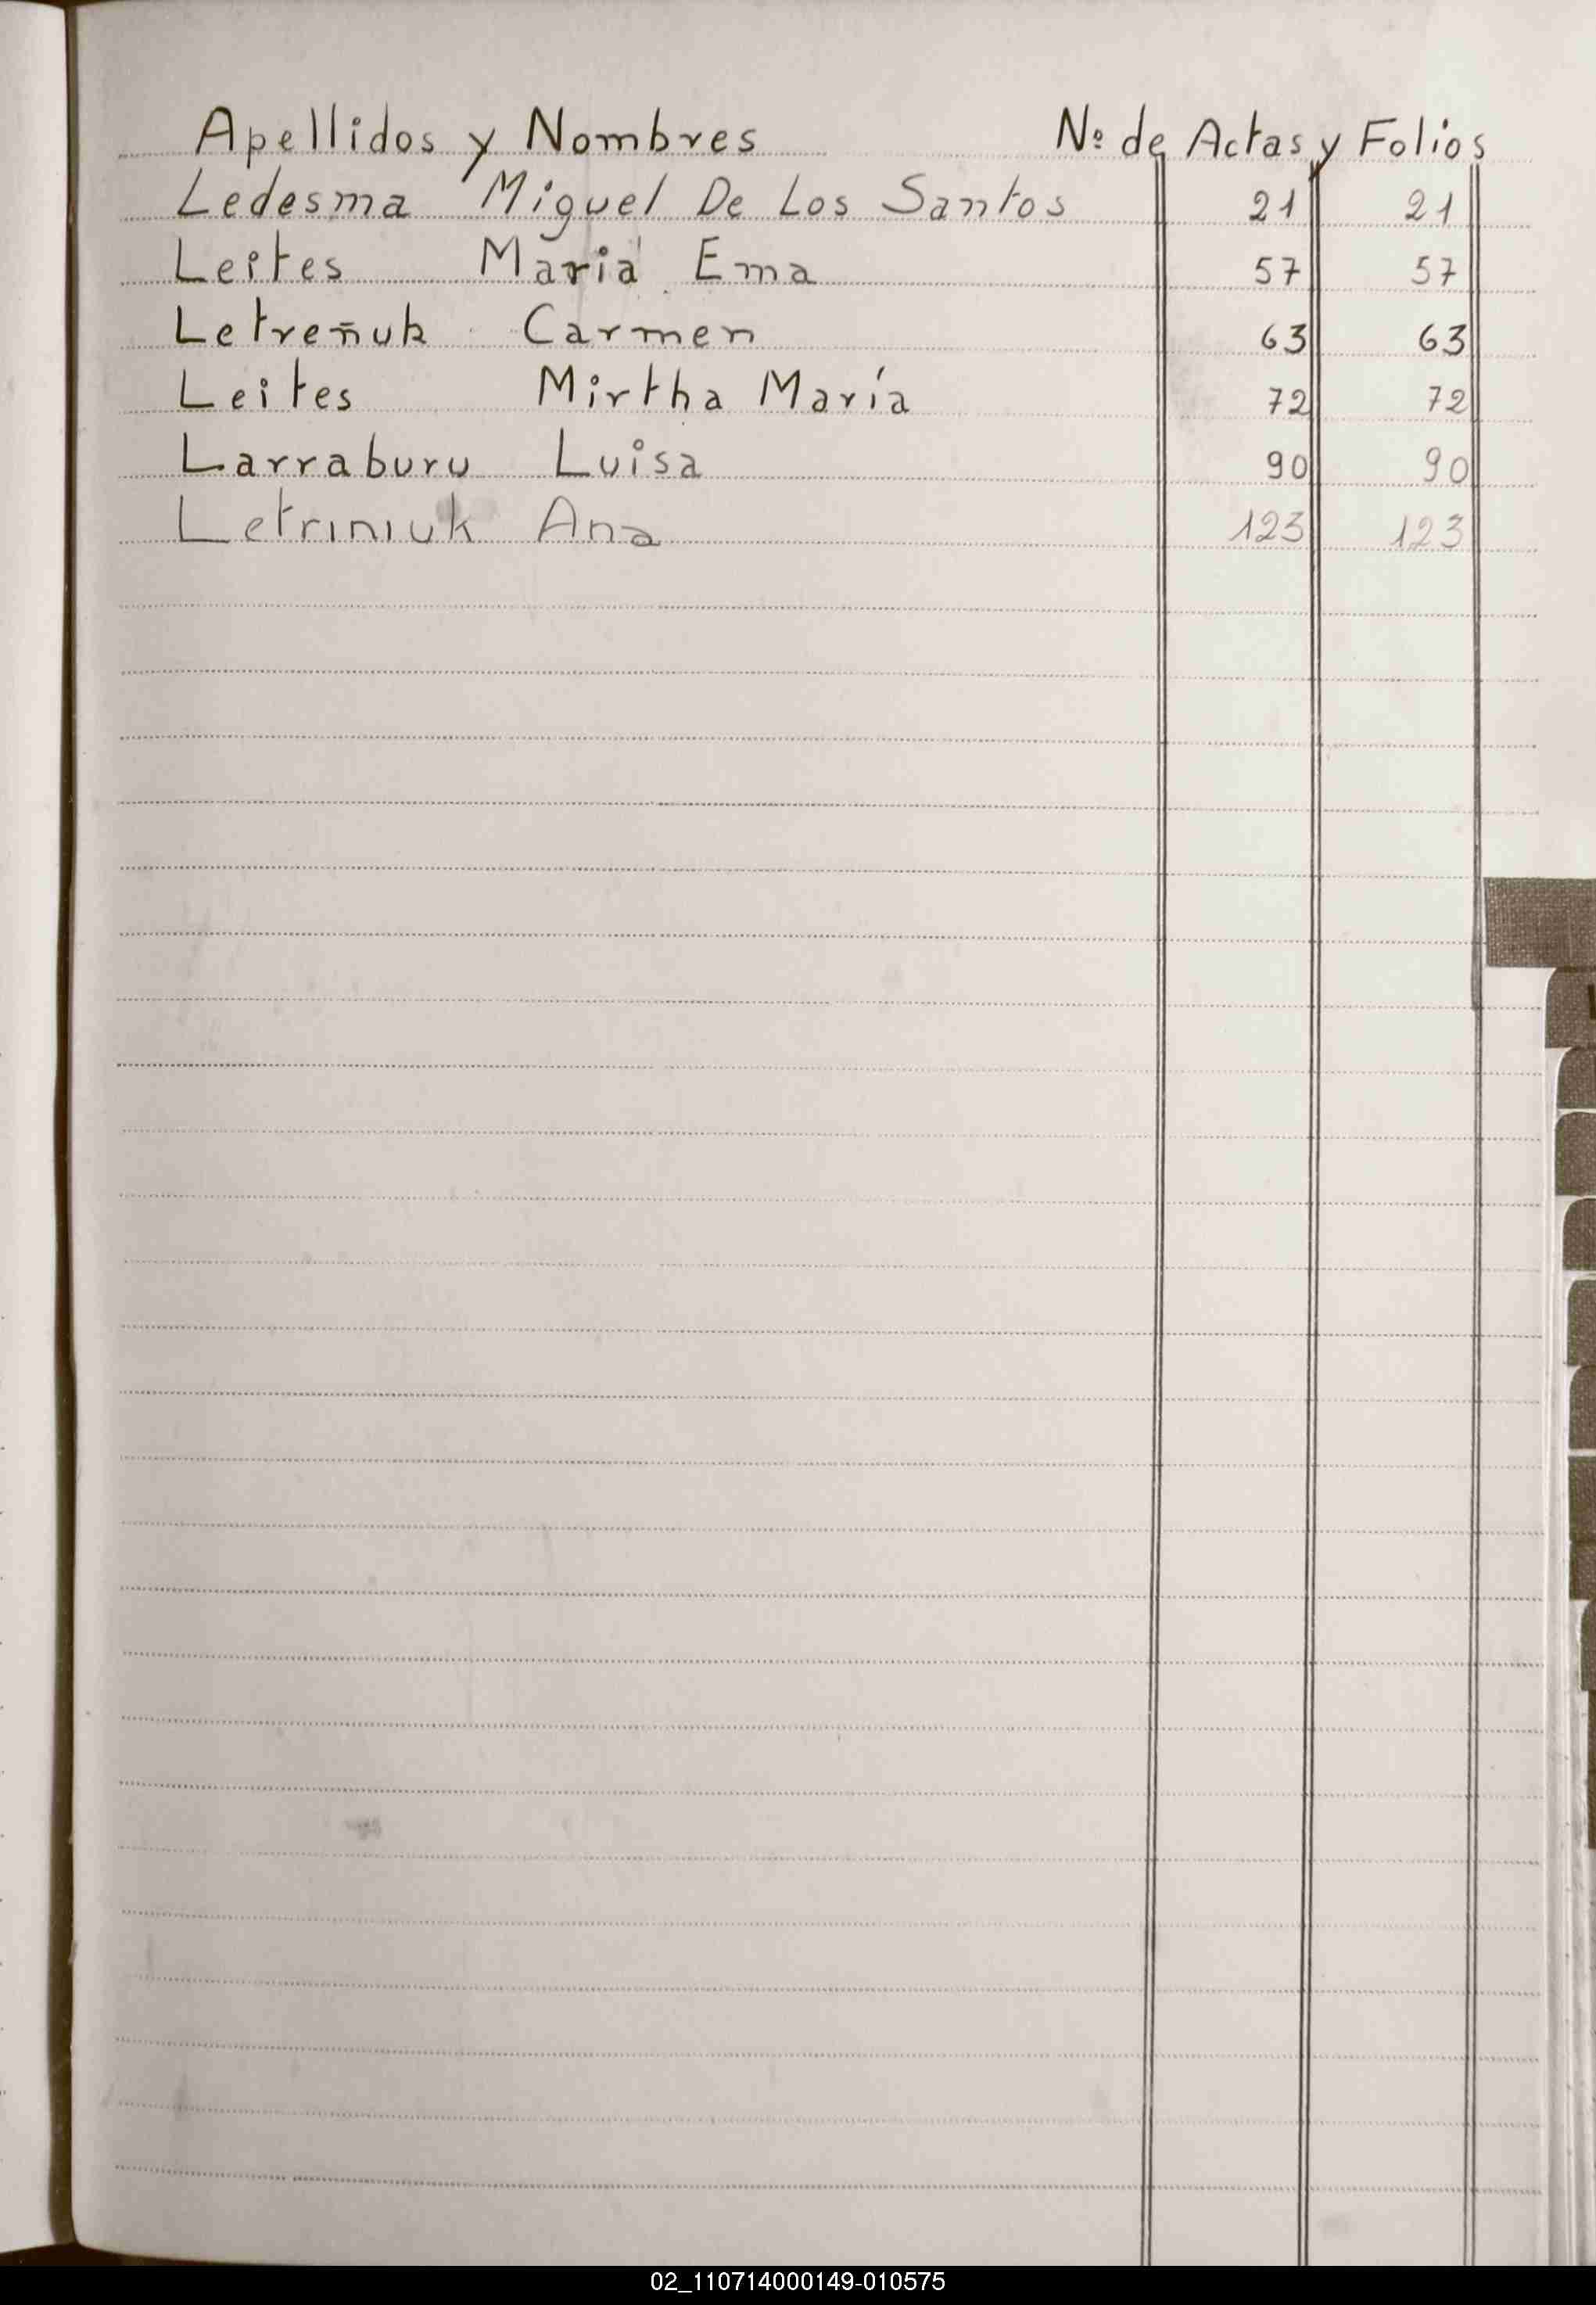 Apellidos y Nombres Nº de Actas y Folios
Ledesma Miguel De Los Santos 21 21
Leites Maria Ema 57 57
Letreñuk Carmen 63 63
Leites Mirtha María 72 72
Larraburu Luisa 90 90
Letriniuk Ana 123 123
02_110714000149-010575